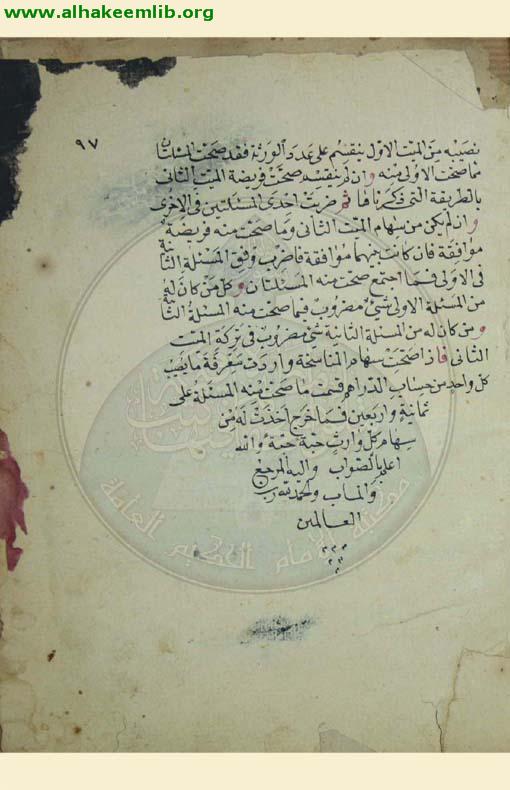 www.alhakeemlib.org
٩٧
نصيبه من الميت الاول ينقسم على عدد الورثة فقد صحت المسئلتان
مما صحت الاولى منه وان لم ينقسم صحت فريضة الميت الثانى
بالطريقة التى ذكرناها ثم ضربت احدى المسئلتين فى الاخرى
وان لم يكن من سهام الميت الثانى وما صحت منه فريضة
موافقة فان كانت بينهما موافقة فاضرب وفق المسئلة الثانية
فى الاولى فما اجتمع صحت منه المسئلتان وكل من كان له
من المسئلة الاولى شئ مضروب فيما صحت منه المسئلة الثانية
ومن كان له من المسئلة الثانية شئ مضروب فى تركة الميت
الثانى فاذا صحت سهام المناسخة واردت معرفة ما يصيب
كل واحد من حساب الدراهم قسمت ما صحت منه المسئلة على
ثمانية واربعين فما خرج اخذت له من
سهام كل وارث حبة حبة والله
اعلم بالصواب واليه المرجع
والماب والحمد لله رب
العالمين
مكتبة الامام الحكيم العامة